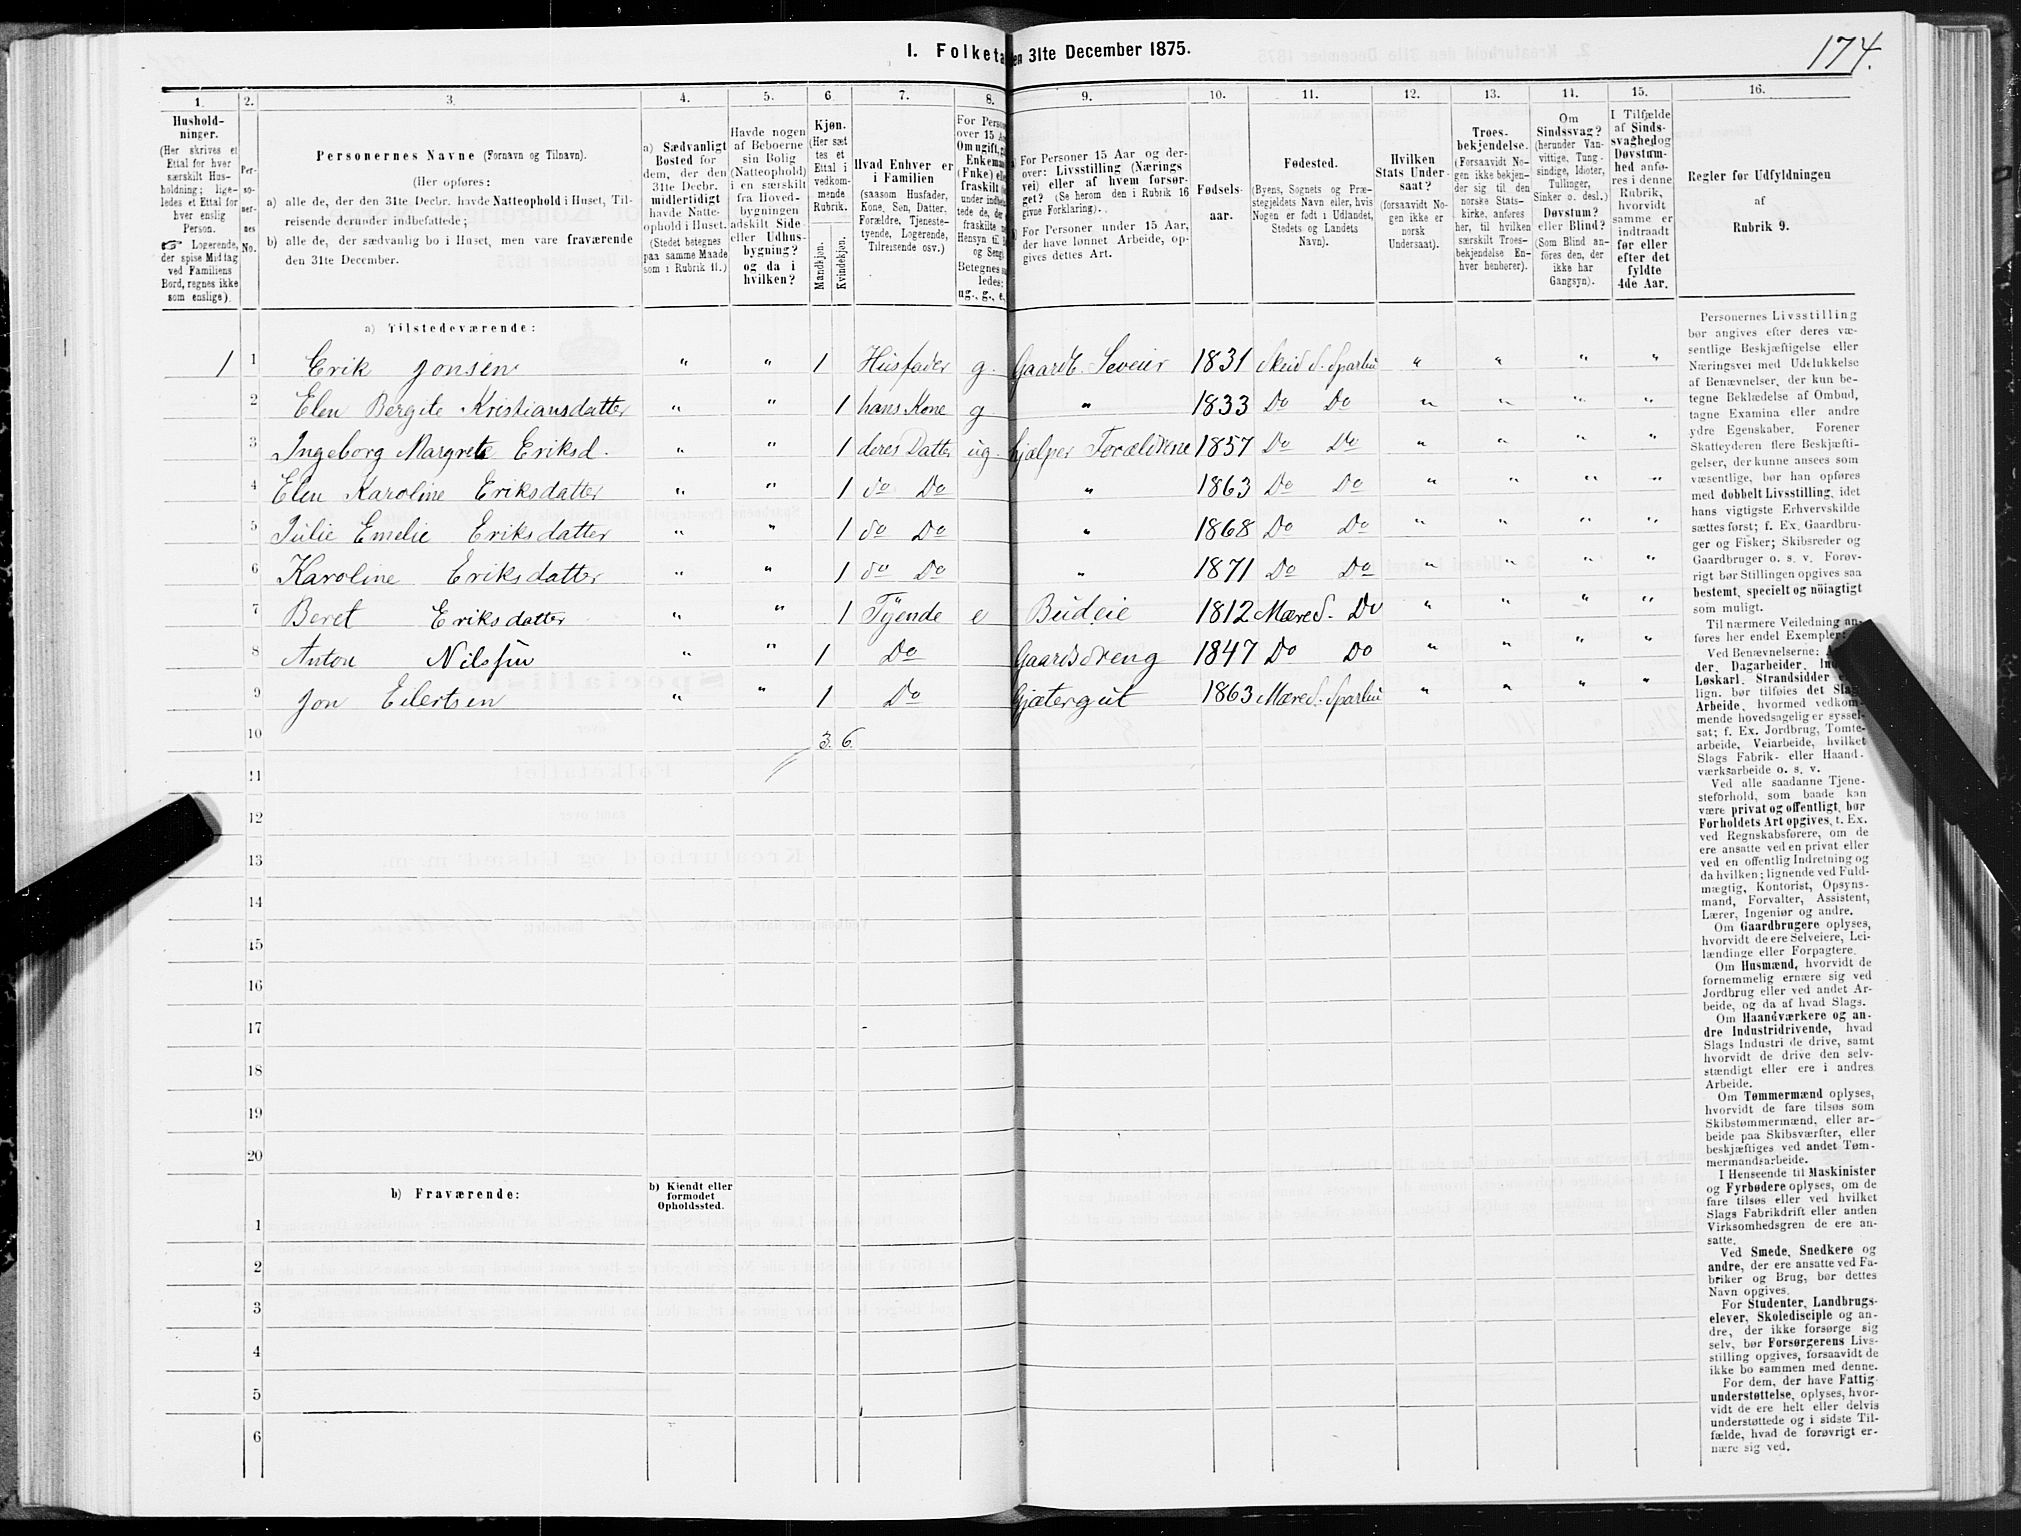 I. Folketa en 31te December 1875.
174.
1. 2. 3. 4. 5. 6. 7. 8. 9. 10. 11. 12. 13. 14. 15. 16.
Hushold-
ninger.
(Her skrives et
Ettal for hver
særskilt Hus-
holdning; lige-
ledes et Ettal for
hver enslig
Person.
☞ Logerende,
der spise Middag
ved Familiens
Bord, regnes ikke
som enslige).
Per-
so-
ner-
nes
No.
Personernes Navne (Fornavn og Tilnavn).
(Her opføres:
a) alle de, der den 31te Decbr. havde Natteophold i Huset, Til-
reisende derunder indbefattede;
b) alle de, der sædvanlig bo i Huset, men vare fraværende
den 31te December.
a) Sædvanligt
Bosted for
dem, der den
31te Decbr.
midlertidigt
havde Natte-
ophold i Huset.
(Stedet betegnes
paa samme Maade
som i Rubrik 11.)
Havde nogen
af Beboerne
sin Bolig
(Natteophold)
i en særskilt
fra Hoved-
bygningen
adskilt Side-
eller Udhus-
bygning?
og da i
hvilken?
Kjøn.
(Her sæt-
tes et
Ettal i
vedkom-
mende
Rubrik.
Mandkjøn.
Kvindekjøn.
Hvad Enhver er
i Familien
(saasom Husfader,
Kone, Søn, Datter,
Forældre, Tjeneste-
tyende, Logerende,
Tilreisende osv.)
For Persone
over 15 Aa
Om ugift, g
Enkeman
(Fnke) el
fraskilt
under indbefat-
tede de, de
fraskilte
Hensyn til
og Seng).
Betegnes s
ledes:
ug., g., e.,
a) For Personer 15 Aar og der-
over: Livsstilling (Nærings
vei) eller af hvem forsør-
get? (Se herom den i Rubrik 16
givne Forklaring).
b) For Personer under 15 Aar,
der have lønnet Arbeide, op-
gives dettes Art.
Fødsels-
aar.
Fødested.
(Byens, Sognets og Præ-
stegjeldets Navn eller, hvis
Nogen er født i Udlandet,
Stedets og Landets
Navn).
Hvilken
Stats Under-
saat?
(forsaavidt No-
gen ikke er
norsk
Undersaat).
Troes-
bekjendelse.
(Forsaavidt No-
gen ikke bekjen-
der sig til den
norske Stats-
kirke, anføres
her, til hvilken
særskilt Troes-
bekjendelse En-
hver henhører).
Om
Sindssvag?
(herunder Van-
vittige, Tung-
sindige, Idioter,
Tullinger,
Sinker o. desl.)
Døvstum?
eller Blind?
(Som Blind an-
føres den, der
ikke har
Gangsyn).
I Tilfælde
af Sinds-
svaghed og
Døvstum-
hed anfø-
res i denne
Rubrik,
hvorvidt
samme er
indtraadt
før eller
efter det
fyldte
4de Aar.
Regler for Udfyldningen
af
Rubrik 9.
a) Tilstedeværende:
1 1 Erik Jonsen " " 1 Husfader g. Gaardb. Seveier 1831 Skeid S. Sparbu " " " "
2 Elen Bergite Kristiansdatter " " 1 hans Kone g " 1833 Do Do " " " "
3 Ingeborg Margrete Eriksd. " " 1 deres Datter ug. hjælper Forældrene 1857 Do Do " " " "
4 Elen Karoline Eriksdatter " " 1 do Do " 1863 Do Do " " " "
5 Julie Emelie Eriksdatter " " 1 do Do " 1868 Do Do " " " "
6 Karoline Eriksdatter " " 1 do Do " 1871 Do Do " " " "
7 Beret Eriksdatter " " 1 Tyende e Budeie 1812 Mære S. Do " " " "
8 Anton Nilssen " " 1 Do Gaardsdreng 1847 Do Do " " " "
9 Jon Eilertsen " " 1 Do Gjætergut 1863 Mære S. Sparbu " " " "
10 3. 6.
11
12
13
14
15
16
17
18
19
20
b) Fraværende:
b) Kjendt eller
formodet
Opholdssted.
1
2
3
4
5
6
Personernes Livsstilling
bør angives efter deres væ-
sentlige Beskjæftigelse eller
Næringsvei med Udelukkelse
af Benævnelser, der kun be-
tegne Beklædelse af Ombud,
tagne Examina eller andre
ydre Egenskaber. Forener
Skatteyderen flere Beskjæfti-
gelser, der kunne ansees som
væsentlige, bør han opføres
med dobbelt Livsstilling, idet
hans vigtigste Erhvervskilde
sættes først; f. Ex. Gaardbru-
ger og Fisker; Skibsreder og
Gaardbruger o. s. v. Forøv-
rigt bør Stillingen opgives saa
bestemt, specielt og nöiagtigt
som muligt.
Til nærmere Veiledning an-
føres her endel Exempler:
Ved Benævnelserne:
der, Dagarbeider, In
Løskarl, Strandsidder
lign. bør tilføies det Slag
Arbeide, hvormed vedkom-
mende hovedsagelig er syssel-
sat; f. Ex. Jordbrug, Tomte-
arbeide, Veiarbeide, hvilket
Slags Fabrik- eller Haand-
værksarbeide o. s. v.
Ved alle saadanne Tjene-
steforhold, som baade kan
være privat og offentligt, bør
Forholdets Art opgives, t. Ex.
ved Regnskabsførere, om de
ere ansatte ved en privat eller
ved en offentlig Indretning og
da hvilken; lignende ved Fuld-
mægtig, Kontorist, Opsyns-
mand, Forvalter, Assistent,
Lærer, Ingeniør og andre.
Om Gaardbrugere oplyses,
hvorvidt de ere Selveiere, Lei-
lændinge eller Forpagtere.
Om Husmænd, hvorvidt de
fornemmelig ernære sig ved
Jordbrug eller ved andet Ar-
beide, og da af hvad Slags.
Om Haandværkere og an-
dre Industridrivende, hvad
Slags Industri de drive, samt
hvorvidt de drive den selv-
stændigt eller ere i andres
Arbeide.
Om Tømmermænd oplyses,
hvorvidt de fare tilsøs som
Skibstømmermænd, eller ar-
beide paa Skibsværfter, eller
beskjæftiges ved andet Tøm-
mermandsarbeide.
I Henseende til Maskinister
og Fyrbødere oplyses, om de
fare tilsøs eller ved hvilket
Slags Fabrikdrift eller anden
Virksomhedsgren de ere an-
satte.
Ved Smede, Snedkere og
andre, der ere ansatte ved Fa-
briker og Brug, bør dettes
Navn opgives.
For Studenter, Landbrugs-
elever, Skoledisciple og an-
dre, der ikke forsørge sig
selv, bør Forsørgerens Livs-
stilling opgives, forsaavidt de
ikke bo sammen med denne.
For dem, der have Fattig-
understøttelse, oplyses, hvor-
vidt de ere helt eller delvis
understøttede og i sidste Til-
fælde, hvad de forøvrigt er-
nære sig ved.